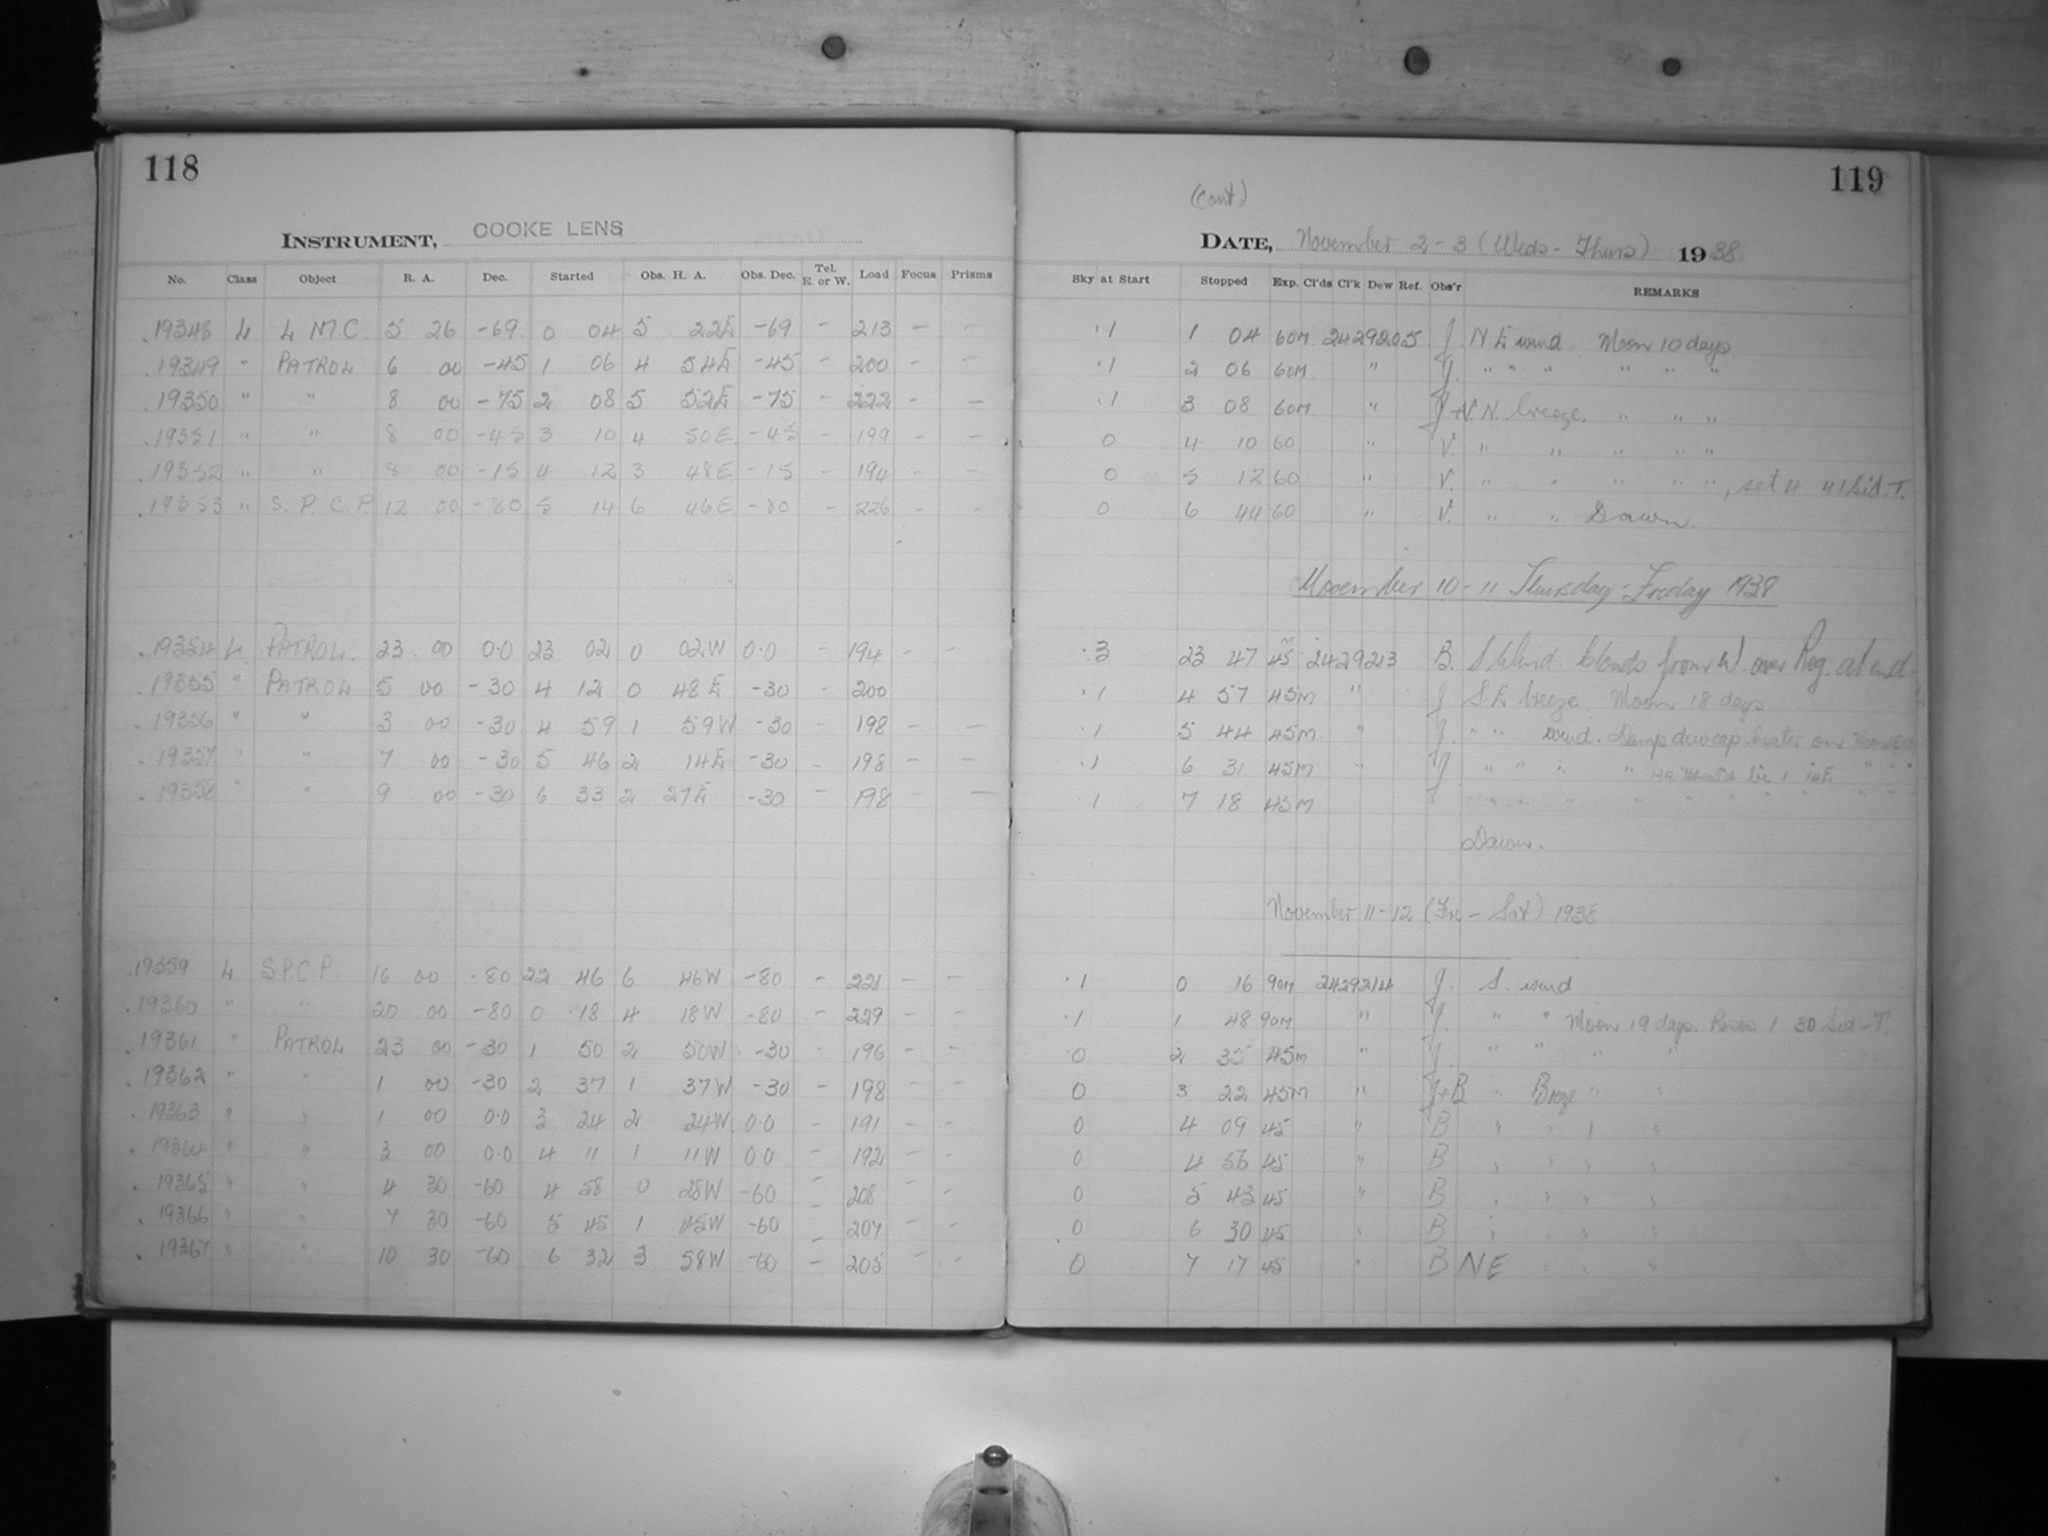 118
INSTRUMENT, COOKE LENS
No. Class Object R. A. Dec. Started Obs. H. A. Obs. Dec. Tel. E. or W. Load Focus Prisms
19348 L L M.C. 5 26 -69 0 04 5 22E -69 - 213 - -
19349 " PATROL 6 00 -45 1 06 4 54E -45 - 200 - -
19350 " " 8 00 -75 2 08 5 52E -75 - 222 - -
19351 " " 8 00 -45 3 10 4 50E -45 - 199 - -
19352 " " 8 00 -15 4 12 3 48E -15 - 194 - -
19353 " S. P. C. P. 12 00 -80 5 14 6 46E -80 - 226 - -
19354 L PATROL 23 00 0.0 23 02 0 02W 0.0 - 194 - -
19355 " PATROL 5 00 -30 4 12 0 48E -30 - 200
19356 " " 3 00 -30 4 59 1 59W -30 - 198 - -
19357 " " 7 00 -30 5 46 2 14E -30 - 198 - -
19358 " " 9 00 -30 6 33 2 27E -30 - 198 - -
19359 L S.P.C P. 16 00 -80 22 46 6 46W -80 - 221 - -
19360 " " 20 00 -80 0 18 4 18W -80 - 229 - -
19361 " PATROL 23 00 -30 1 50 2 50W -30 - 196 - -
19362 " " 1 00 -30 2 37 1 37W -30 - 198 - -
19363 " " 1 00 0.0 3 24 2 24W 0.0 - 191 - -
19364 " " 3 00 0.0 4 11 1 11W 0.0 - 192 - -
19365 " " 4 30 -60 4 58 0 28W -60 - 208 - -
19366 " " 7 30 -60 5 45 1 45W -60 - 207 - -
19367 " " 10 30 -60 6 32 3 58W -60 - 205 - -
119
(Cont)
DATE, November 2-3 (Weds - Thurs) 1938
Sky at Start Stopped Exp. Cl'ds Cl'k Dew Ref. Obs'r REMARKS
.1 1 04 60M 2429205 J. N.E wind. Moon 10 days
.1 2 06 60M " J. " " " " " "
.1 3 08 60M " J+V. N. breeze. " " "
0 4 10 60 " V. " " " " "
0 5 12 60 " V. " " " " ", set 4 41 Sid. T.
0 6 44 60 " V. " " Dawn.
November 10-11 Thursday-Friday 1938
.3 23 47 45 2429213 B. S. Wind. Clouds from W. over Reg. at end.
.1 4 57 45m " J S.E breeze. Moon 18 days
.1 5 44 45m " J. " " wind. Damp dewcap heater on Moon
.1 6 31 45m " J " " " " HA should be 1 14E " "
.1 7 18 45m
Dawn.
November 11-12 (Fri - Sat) 1938
.1 0 16 90m 2429214 J. S. wind
.1 1 48 90m " J. " " Moon 19 days. Rises 1 30 Sid-T.
.0 2 35 45m " J. " " " "
0 3 22 45m " J+B " Breeze " "
0 4 09 45 " B " " " "
0 4 56 45 " B " " " "
0 5 43 45 " B " " " "
.0 6 30 45 " B " " " "
0 7 17 45 " B NE " " "